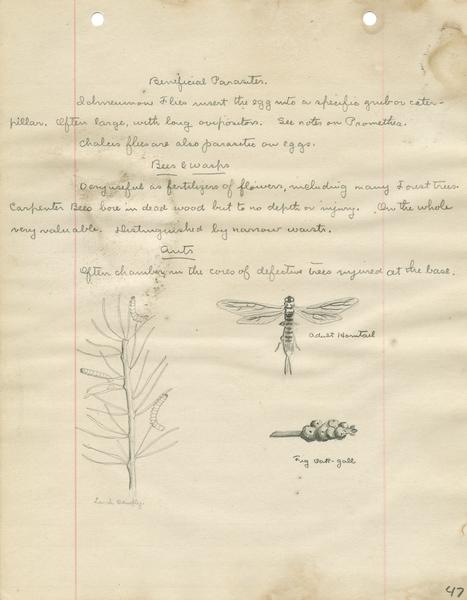 Beneficial Parasites.
Ichneumon Flies insert the egg into a specific grub or cater-
pillar. Often large, with long ovipositors. See notes on Promethea.
Chalcis flies are also parasitic on eggs.
Bees & Wasps
Very useful as fertilizers of flowers, including many Forest trees.
Carpenter Bees bore in dead wood but to no depth or injury. On the whole
very valuable. Distinguished by narrow waists.
Ants
Often chamber in the cores of defective trees injured at the base.
Adult Horntail
Fig Oak-gall
47